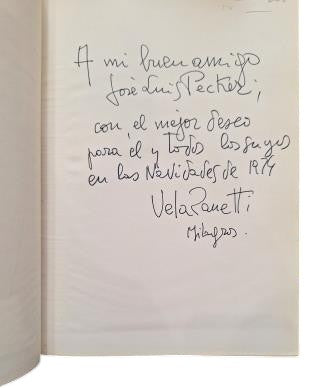 A mi buen amigo
José Luis Pecker;
con el mejor deseo
para él y todos los suyos
en las Navidades de 1974
Vela Zanetti
Milagros.